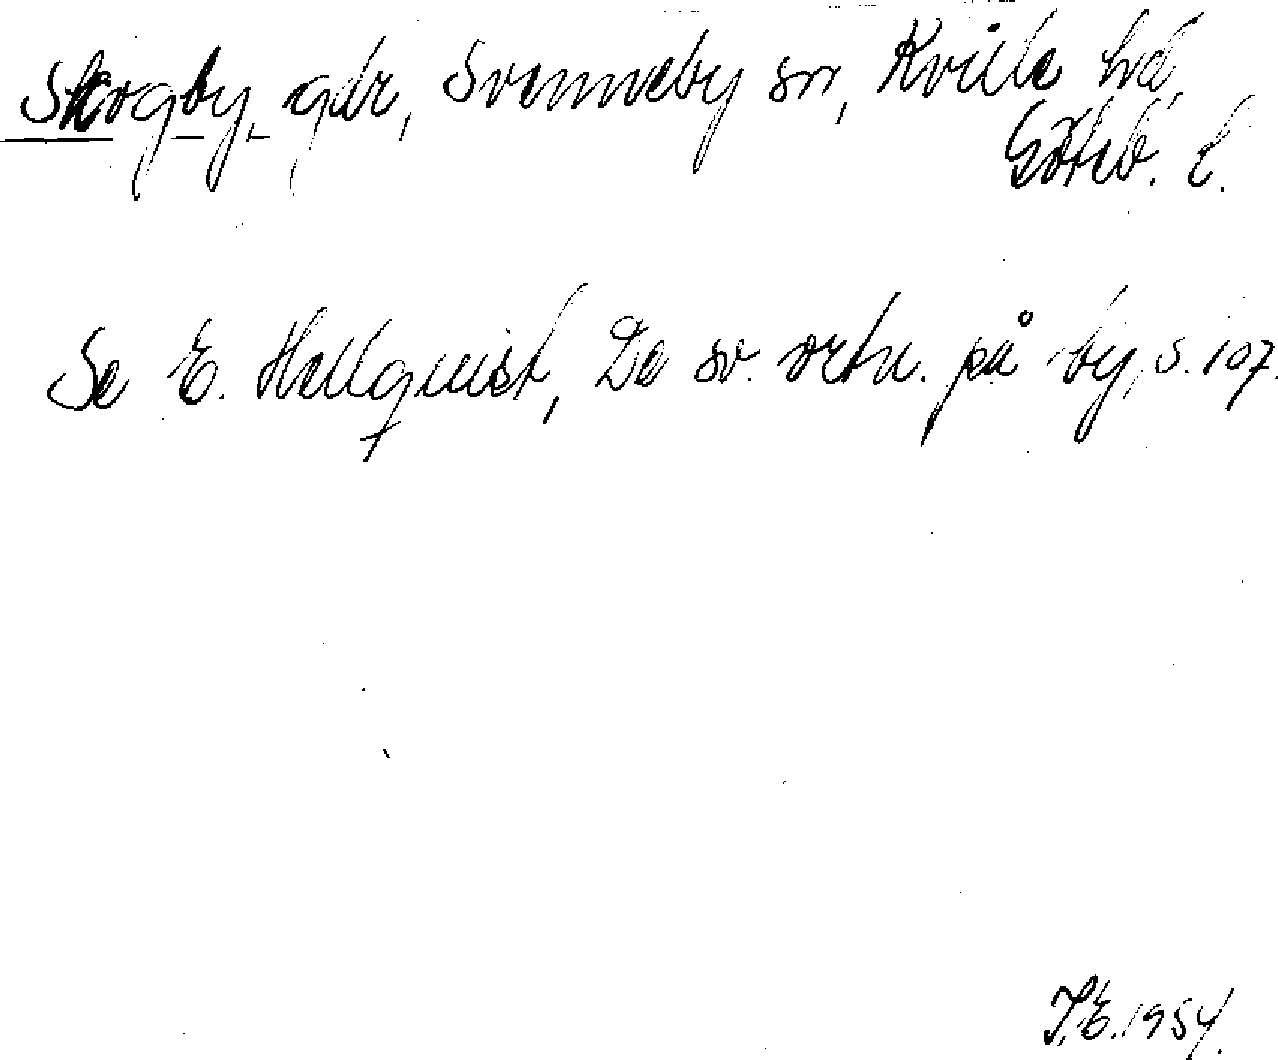 Skogby, gdr, Svenneby sn, Kville hd,
Göteb. l.
Se E. Hellquist, De sv. ortn. på -by, s. 107.
I.E. 1954.